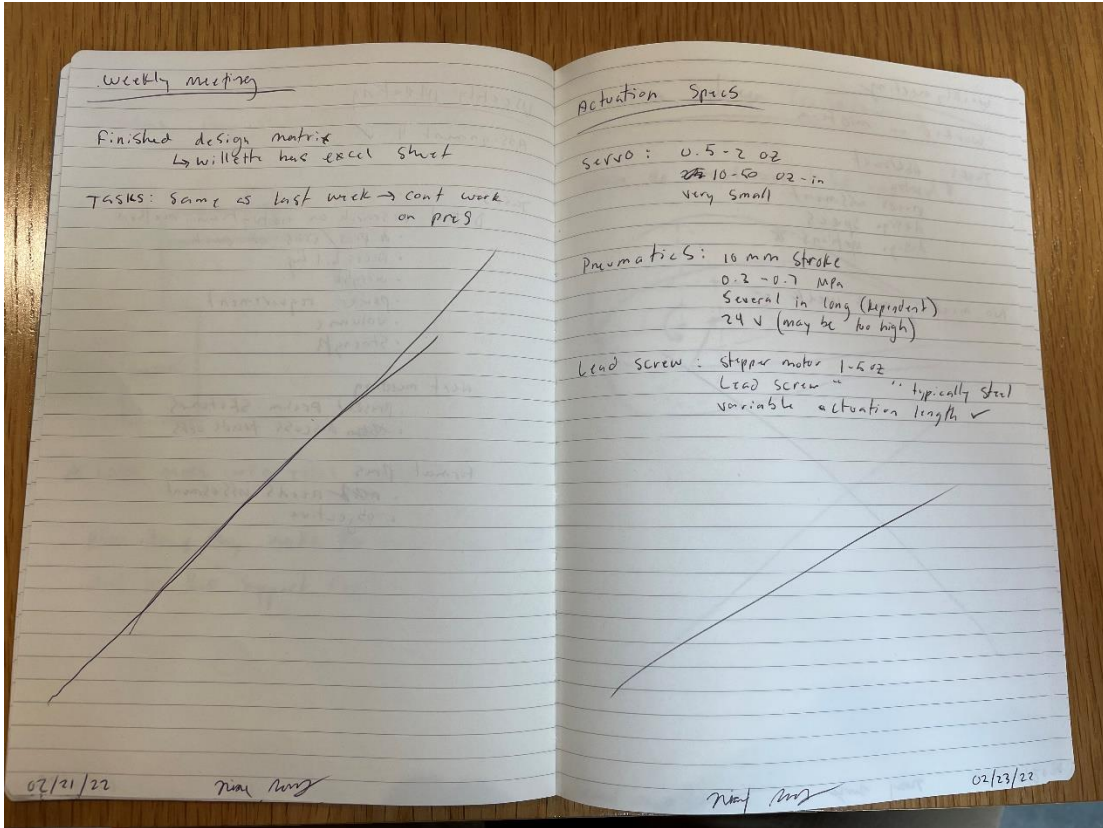 Weekly meeting
Finished design matrix
↳ willette has excel sheet
TASKS: Same as last week → cont work
on pres
02/21/22
Actuation Specs
Servo: 0.5-2 oz
10-50 oz-in
very small
Pneumatics: 10 mm stroke
0.2-0.7 MPa
Several in long (dependent)
24 V (may be too high)
Lead screw: stepper motor 1-5 oz
Lead screw " " typically steel
variable actuation length ✓
02/23/22